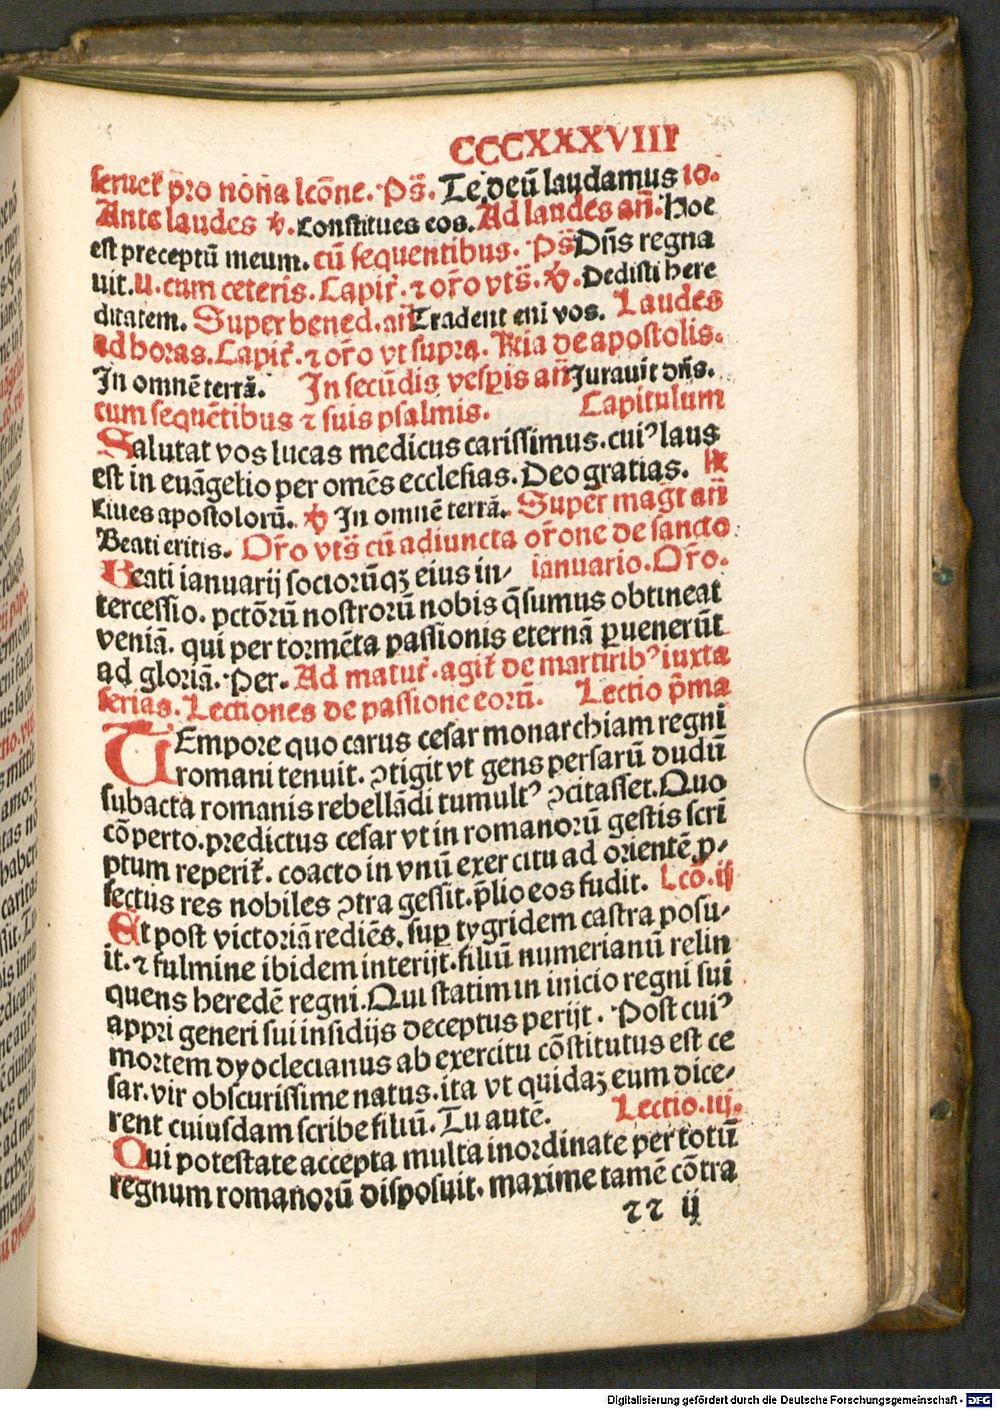 CCCXXXVIII
seruet᷒ p̄ro nona lcōne. Ps̄. Te deū laudamus 10.
Ante laudes ℣. Constitues eos. Ad laudes an̄. Hoc
est preceptū meum. cū sequentibus. Ps̄ Dn̄s regna
uit. U. cum ceteris. Capit᷒. ⁊ or̄o vts̄. ℣. Dedisti here
ditatem. Super bened. an̄ Tradent eni vos. Laudes
ad horas. Capit᷒. ⁊ or̄o vt supra. Rn̄ia de apostolis.
In omnē terrā. In secūdis vesp̄is an̄ Jurauit dn̄s.
cum sequētibus ⁊ suis psalmis. Capitulum
Salutat vos lucas medicus carissimus. cuiꝰ laus
est in euāgelio per omēs ecclesias. Deo gratias.
Ciues apostolorū. ℣ In omnē terrā. Super mag̅t an̄
Beati eritis. Or̄o vts̄ cū adiuncta or̄one de sancto
Beati ianuarij sociorūqꝫ eius in⸗ ianuario. Or̄o.
tercessio. pctōrū nostrorū nobis q̄sumus obtineat
veniā. qui per tormēta passionis eternā ꝑuenerūt
ad gloriā. Per. Ad matut᷒. agit᷒ de martiribꝰ iuxta
ferias. Lectiones de passione eorū. Lectio p̄ma
TEmpore quo carus cesar monarchiam regni
romani tenuit. ↄtigit vt gens persarū dudū
subacta romanis rebellādi tumultꝰ ↄcitasset. Quo
cōperto. predictus cesar vt in romanorū gestis scri
ptum reperit᷒. coacto in vnū exercitu ad orientē p⸗
fectus res nobiles ↄtra gessit. p̄lio eos fudit. Lcō. ij
Et post victoriā rediēs. suꝑ tygridem castra posu⸗
it. ⁊ fulmine ibidem interijt. filiū numerianū relin
quens heredē regni. Qui statim in inicio regni sui
appri generi sui insidijs deceptus perijt. Post cuiꝰ
mortem dyoclecianus ab exercitu cōstitutus est ce
sar. vir obscurissime natus. ita vt quidaꝫ eum dice⸗
rent cuiusdam scribe filiū. Tu autē. Lectio. iij.
Qui potestate accepta multa inordinate per totū
regnum romanorū disposuit. maxime tamē cōtra
⁊⁊ ij
Digitalisierung gefördert durch die Deutsche Forschungsgemeinschaft - DFG